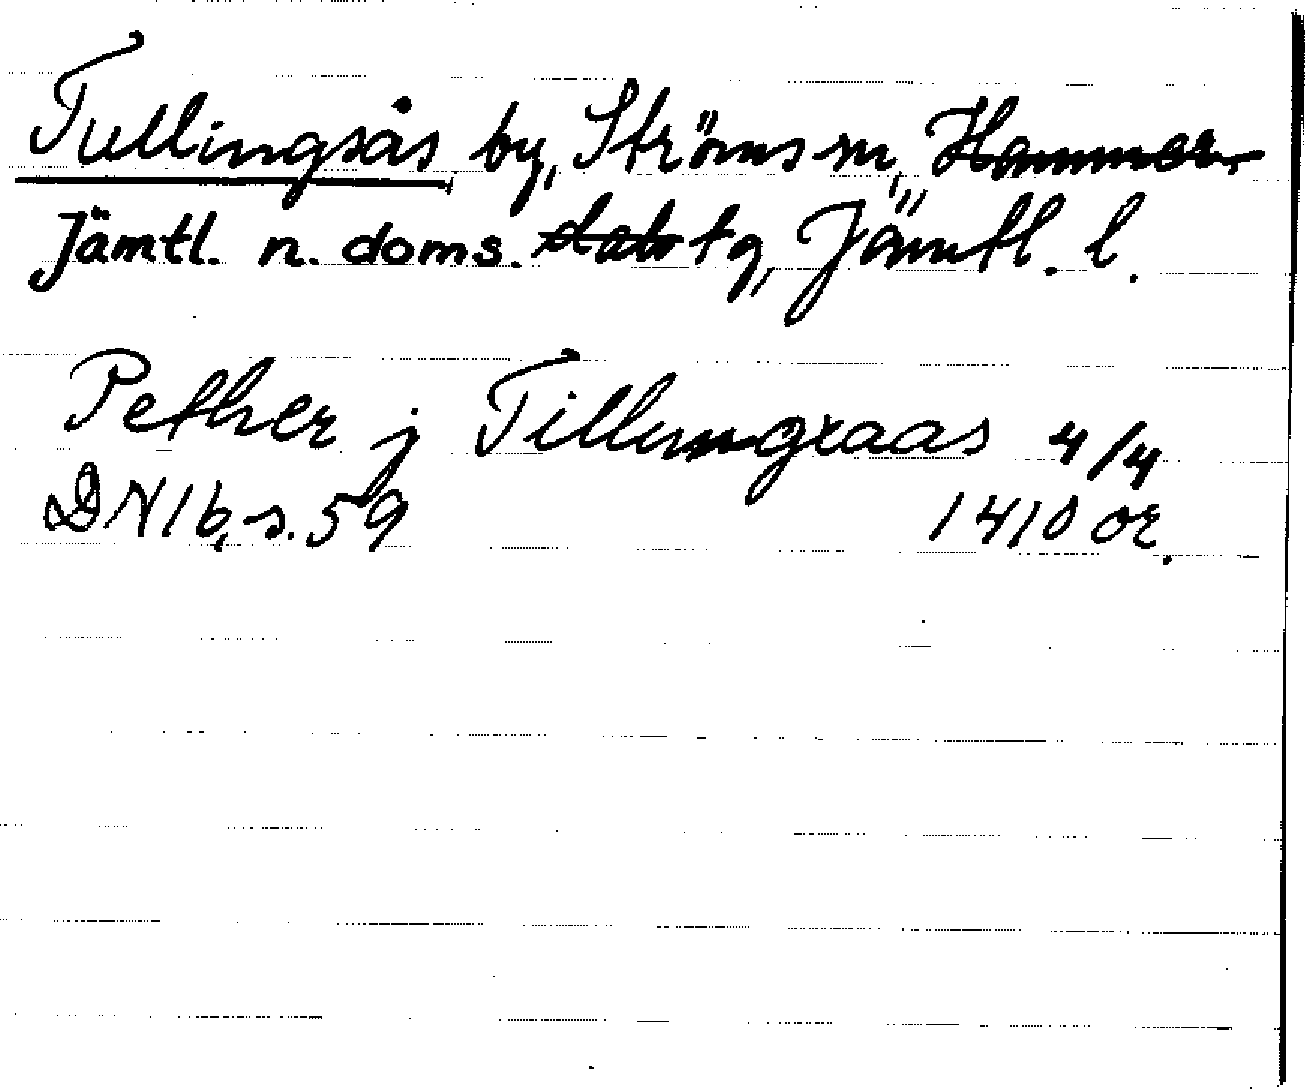 Tullingsås by, Ströms sn, Hammer-
Jämtl. n. doms. dals tg, Jämtl. l.
Pether j Tillungxaas 4/4
DN 16, s. 59 1410 or.